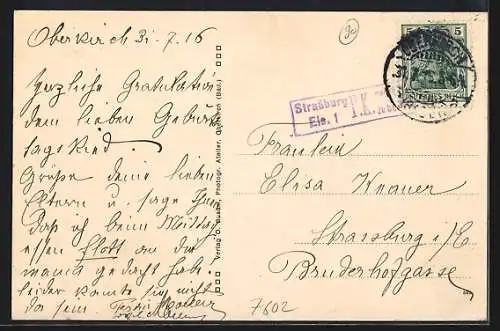 Oberkirch 31.7.16
Herzliche Gratulation
dem lieben Geburts
tagskind.
Grüße deine lieben
Eltern u. sage Ihnen
daß ich beim Mittag
essen flott an die
mama gedacht habe.
leider konnte sie nicht
da sein.
Verlag O. Photogr. Atelier, Oberkirch (Bad.)
5
Straßburg
Els. 1
P.K.
Fräulein
Elisa Knauer
Strassburg i/E
Bruderhofgasse
7602